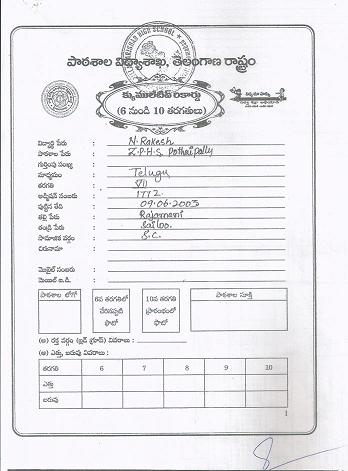 HIGH SCHOOL
పాఠశాల విద్యాశాఖ, తెలంగాణ రాష్ట్రం
క్యుములేటివ్ రికార్డు
(6 నుండి 10 తరగతులు)
విద్యార్థి పేరు : N. Rakesh
పాఠశాల పేరు : Z.P.H.S. Pothiripally
గుర్తింపు సంఖ్య :
మాధ్యమం : Telugu
తరగతి : VII
అడ్మిషన్ నంబరు : 1772
పుట్టిన తేది : 09.06.2003
తల్లి పేరు : Rajamani
తండ్రి పేరు : Sailoo
సామాజిక వర్గం : S.C.
చిరునామా :
మొబైల్ నంబరు :
మెయిల్ ఐ.డి. :
పాఠశాల లోగో
6వ తరగతిలో చేరినప్పటి ఫొటో
10వ తరగతి ప్రారంభంలో ఫొటో
పాఠశాల సూక్తి
(అ) రక్త వర్గం (బ్లడ్ గ్రూప్) వివరాలు :
(ఆ) ఎత్తు, బరువు వివరాలు :
తరగతి 6 7 8 9 10
ఎత్తు
బరువు
1